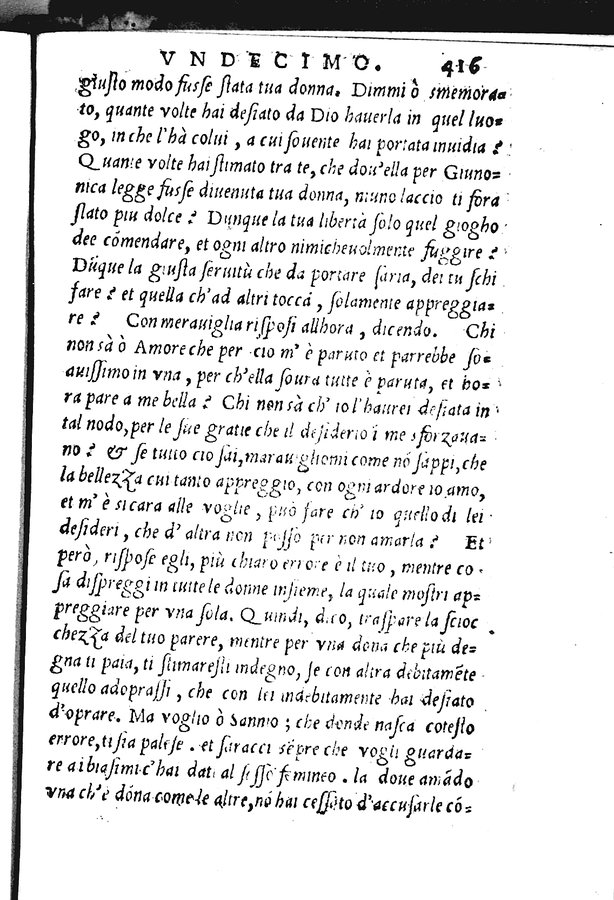 VNDECIMO. 416
giuſto modo fuſſe ſtata tua donna. Dimmi ò smemorda
to, quante volte hai deſiato da Dio hauerla in quel luo=
go, in che l'hà colui, a cui ſouente hai portata inuidia?
Quante volte hai ſtimato tra te, che dou'ella per Giuno=
nica legge fuſſe diuenuta tua donna, niuno laccio ti fora
ſtato piu dolce? Dunque la tua libertà ſolo quel giogho
dee cōmendare, et ogni altro nimicheuolmente fuggire?
Dūque la giuſta ſeruitù che da portare ſaria, dei tu ſchi
fare? et quella ch'ad altri tocca, ſolamente appreggia=
re? Con merauiglia riſpoſi allhora, dicendo. Chi
non sà ò Amore che per cio m'è paruto et parrebbe ſo=
auiſſimo in vna, per ch'ella ſoura tutte è paruta, et ho=
ra pare a me bella? Chi non sà ch'io l'haurei deſiata in
tal nodo, per le ſue gratie che il deſiderio i me sforzaua=
no? & ſe tutto cio ſai, marauigliomi come nō ſappi, che
la bellezza cui tanto appreggio, con ogni ardore io amo,
et m'è si cara alle voglie, può fare ch'io quello di lei
deſideri, che d'altra non poſſo per non amarla? Et
però, riſpoſe egli, più chiaro errore è il tuo, mentre co=
ſa diſpreggi in tutte le donne inſieme, la quale moſtri ap=
preggiare per vna ſola. Quindi, dico, traſpare la ſcioc
chezza del tuo parere, mentre per vna dōna che più de=
gna ti paia, ti ſtimareſti indegno, ſe con altra debitamēte
quello adopraſſi, che con lei indebitamente hai deſiato
d'oprare. Ma voglio ò Sannio; che donde naſca coteſto
errore, ti ſia paleſe. et ſaracci sēpre che vogli guarda=
re ai biaſimi c'hai dati al ſeſſo femineo. la doue amādo
vna ch'è dōna come le altre, nō hai ceſſato d'accuſarle cō=